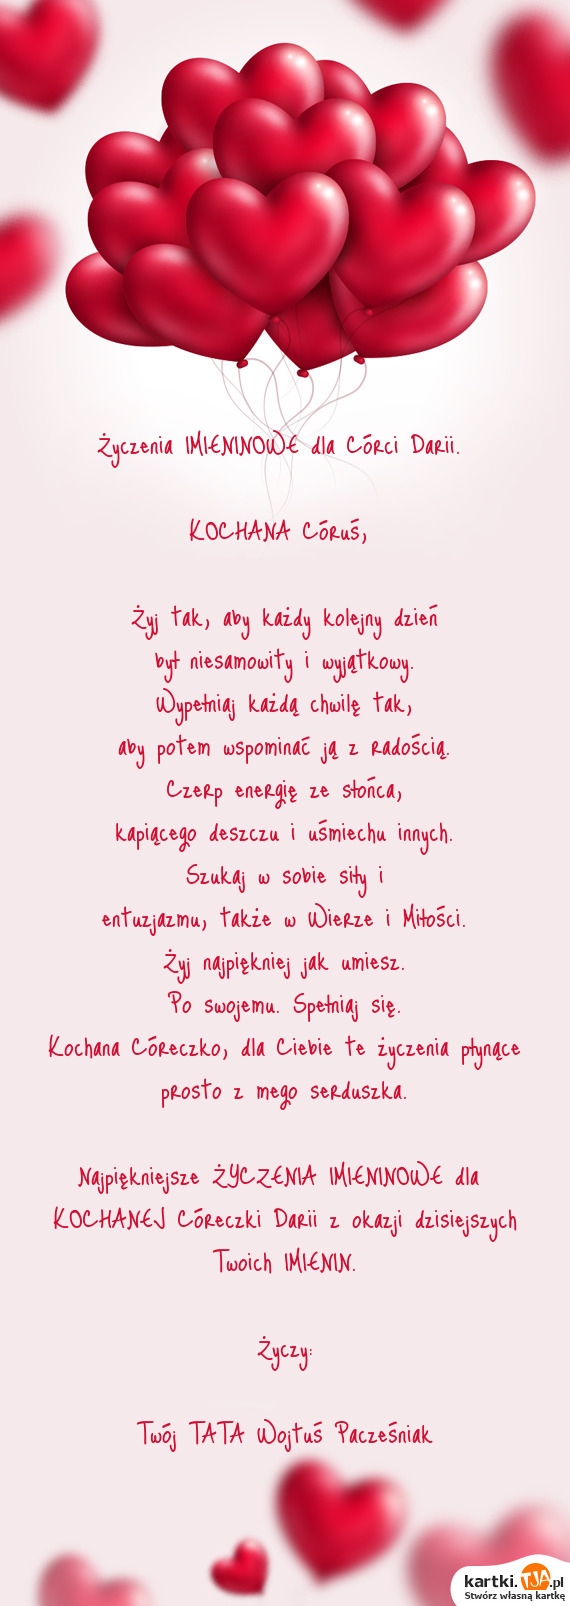 Życzenia IMIENINOWE dla Córci Darii.
KOCHANA Córuś,
Żyj tak, aby każdy kolejny dzień
był niesamowity i wyjątkowy.
Wypełniaj każdą chwilę tak,
aby potem wspominać ją z radością.
Czerp energię ze słońca,
kapiącego deszczu i uśmiechu innych.
Szukaj w sobie siły i
entuzjazmu, także w Wierze i Miłości.
Żyj najpiękniej jak umiesz.
Po swojemu. Spełniaj się.
Kochana Córeczko, dla Ciebie te życzenia płynące
prosto z mego serduszka.
Najpiękniejsze ŻYCZENIA IMIENINOWE dla
KOCHANEJ Córeczki Darii z okazji dzisiejszych
Twoich IMIENIN.
Życzy:
Twój TATA Wojtuś Pacześniak
kartki.TJA.pl
Stwórz własną kartkę